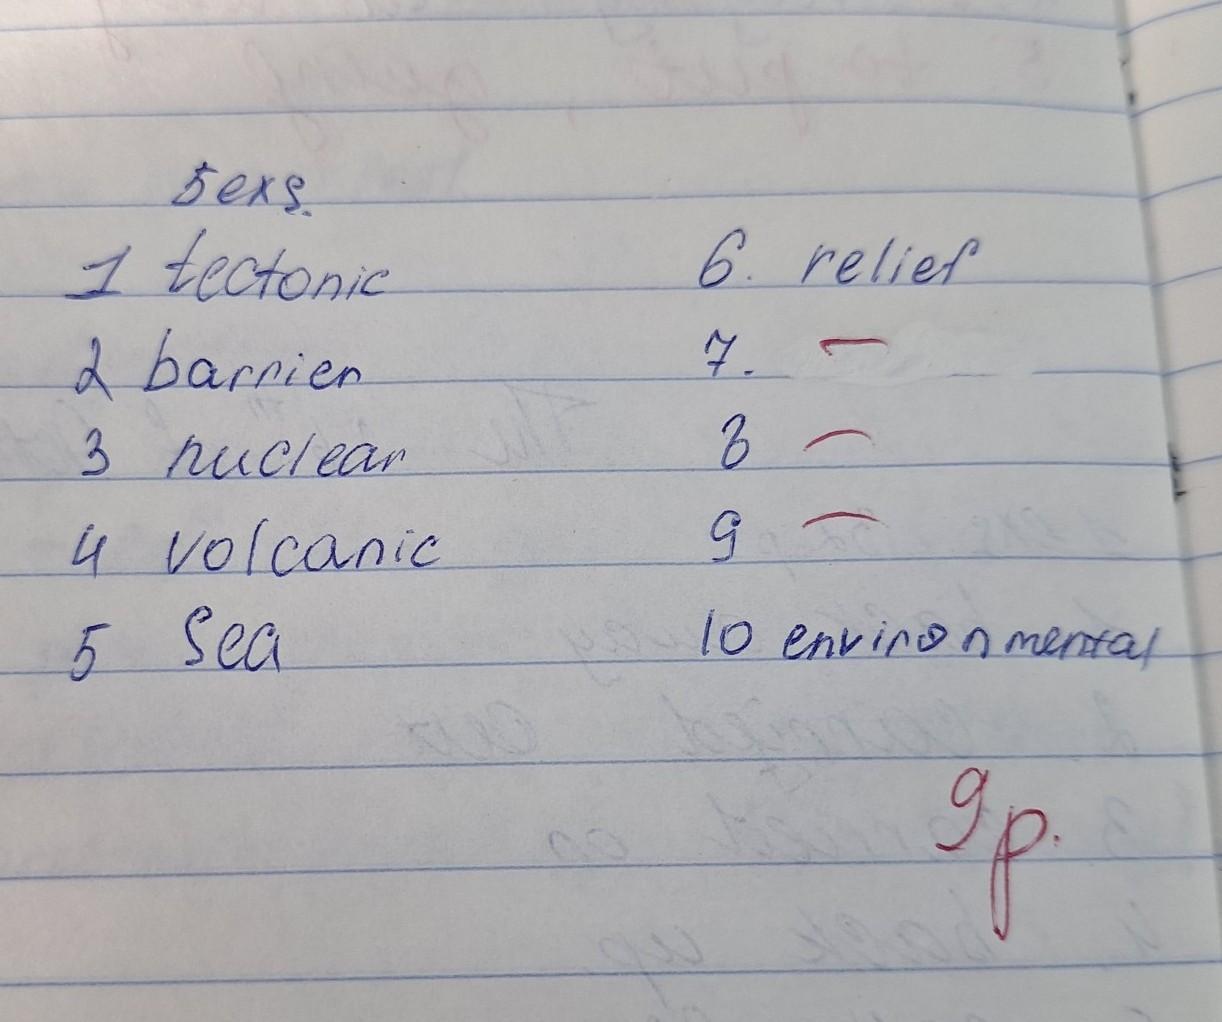 5 exs.
1 tectonic
2 barrier
3 nuclear
4 volcanic
5 Sea
6. relief
7. –
8 –
9 –
10 environmental
9p.